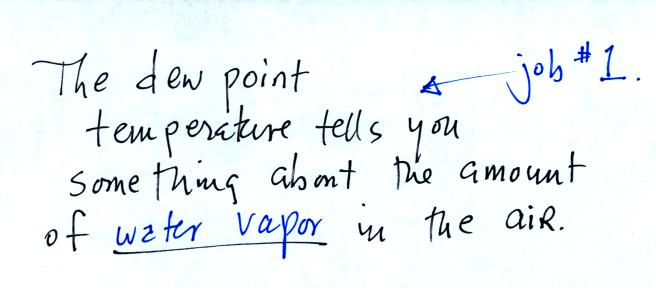 The dew point ← job #1.
temperature tells you
something about the amount
of water vapor in the air.